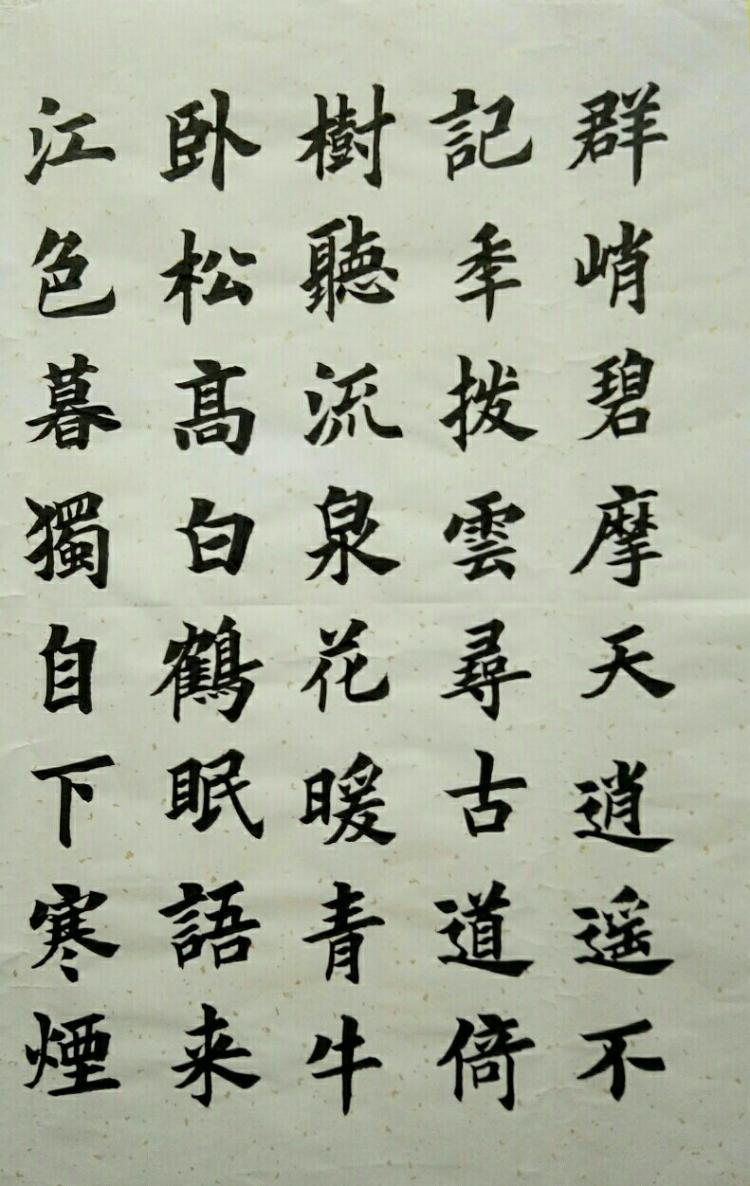 群峭碧摩天逍遥不
記年拨雲尋古道倚
樹聽流泉花暖青牛
卧松髙白鶴眠語来
江色暮獨自下寒煙